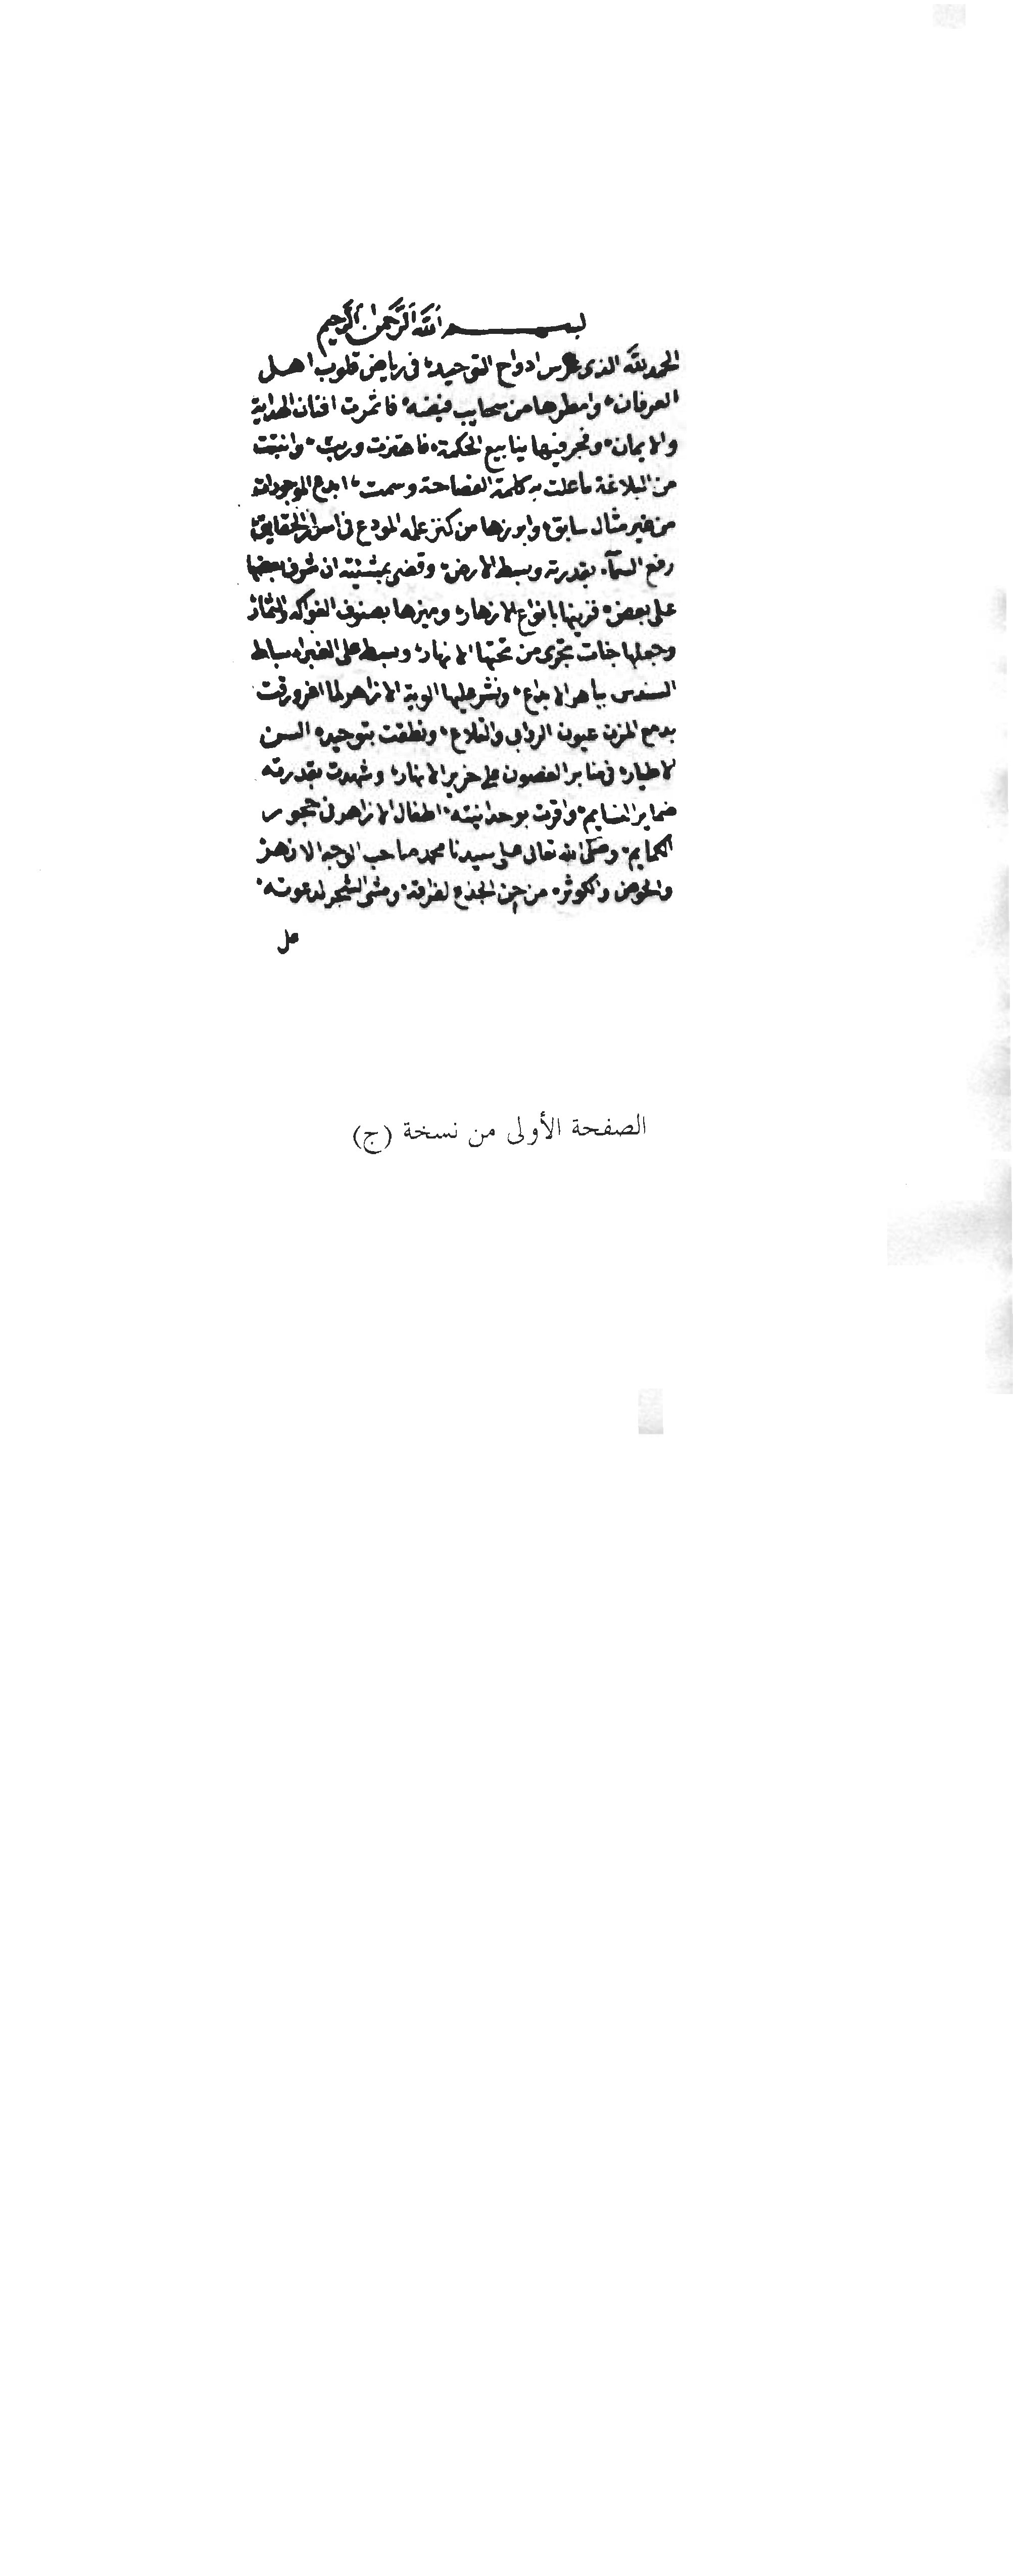 بسم الله الرحمن الرحيم
الحمد لله الذى غرس ادواح التوحيد، فى رياض قلوب اهل
العرفان، وامطرها من سحايب فيضه، فاثمرت افنان الهداية
والايمان، وفجر فيها ينابيع الحكمة، فاهتزت وربت، وانبتت
من البلاغة ما علت به كلمة الفصاحة وسمت، ابدع الموجودات
من غير مثال سابق، وابرزها من كنز علمه المودع فى اسرار الحقايق،
رفع السمآء بقدرته وبسط الارض، وقضى بمشيئته ان شرف بعضها
على بعض، فزينها بانواع الازهار، وميزها بصنوف الفواكه والثمار،
وجعلها جنات تجرى من تحتها الانهار، وبسط على الغبراء بساط
السندس بباهر الابداع، ونشر عليها الوية الازاهر لما اغرورقت
بدمع المزن عيون الروابى والتلاع، ونطقت بتوحيده السن
الاطيار، فى منابر الغصون على خرير الانهار، وشهدت بقدرته
ضماير النسايم، واقرت بوحدانيته، اطفال الازاهر فى حجور
الكمايم، وصلى الله تعالى على سيدنا محمد صاحب الوجه الازهر
والحوض والكوثر، من حن الجذع لفراقه، ومشى الشجر لدعوته،
على
الصفحة الأولى من نسخة (ج)